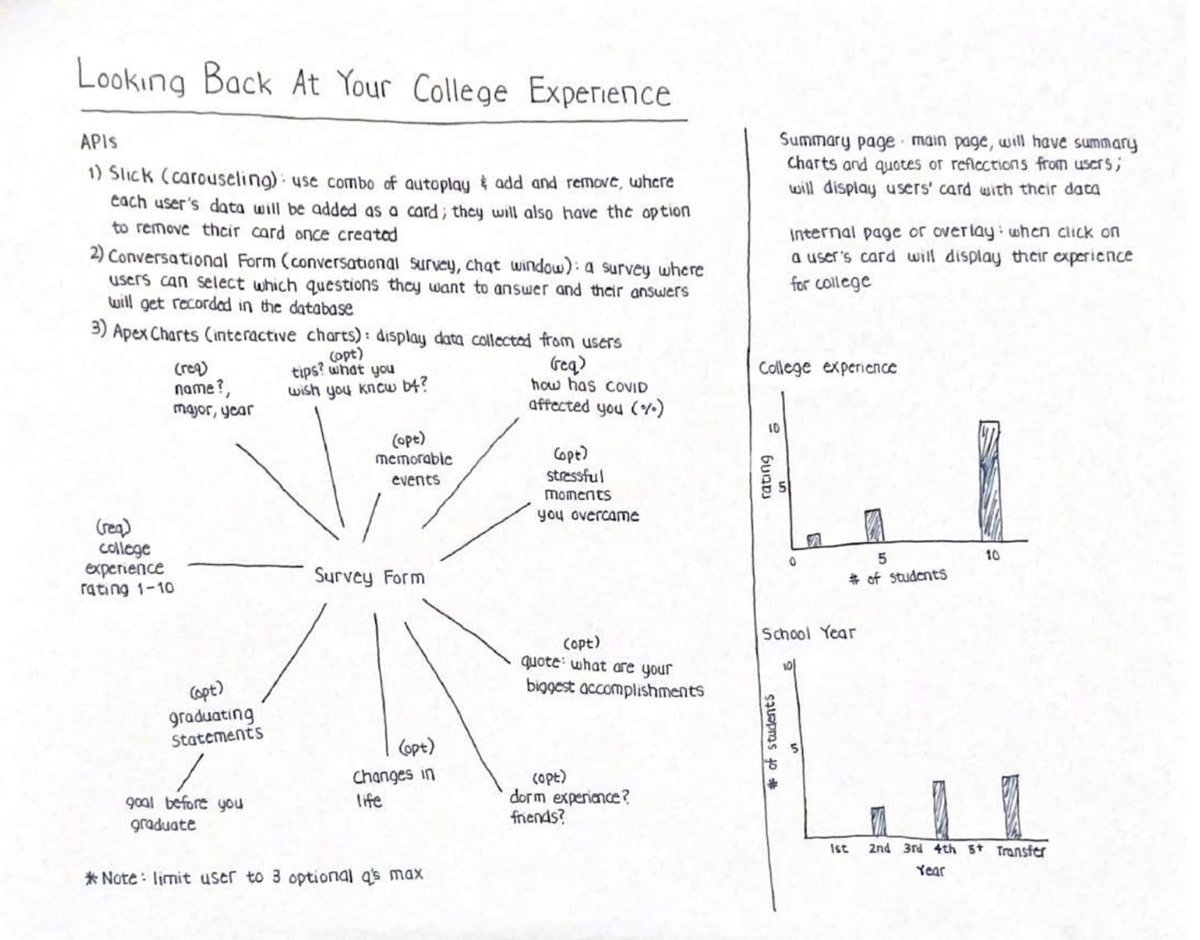 Looking Back At Your College Experience
APIs
1) Slick (carouseling): use combo of autoplay & add and remove, where
each user's data will be added as a card; they will also have the option
to remove their card once created
2) Conversational Form (conversational survey, chat window): a survey where
users can select which questions they want to answer and their answers
will get recorded in the database
3) ApexCharts (interactive charts): display data collected from users
(req)
name?,
major, year
(opt)
tips? what you
wish you knew b4?
(opt)
memorable
events
(req)
how has COVID
affected you (%)
(opt)
stressful
moments
you overcame
(req)
college
experience
rating 1-10
Survey Form
(opt)
quote: what are your
biggest accomplishments
(opt)
graduating
statements
goal before you
graduate
(opt)
changes in
life
(opt)
dorm experience?
friends?
*Note: limit user to 3 optional q's max
Summary page - main page, will have summary
charts and quotes or reflections from users;
will display users' card with their data
Internal page or overlay: when click on
a user's card will display their experience
for college
College experience
10
rating
5
0 5 10
# of students
School Year
10
# of students
5
1st 2nd 3rd 4th 5+ Transfer
Year